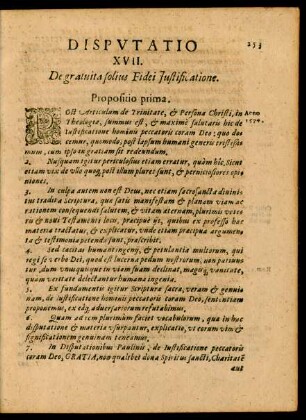 DISPVTATIO
253
XVII.
De gratuita solius Fidei Iustificatione.
Propositio prima.
POst Articulum de Trinitate, & Persona Christi, in
Anno
Theologia, summus est, & maximè salutaris hic de
Iustificatione hominis peccatoris coram Deo; quo do-
cemur, quomodo, post lapsum humani generis tristissi-
mum, cum ipso in gratiam sit redeundum.
2. Nusquam igitur periculosius etiam erratur, quàm hîc. Sicut
etiam vix de vllo quoq; post illum plures sunt, & perniciosiores opi-
niones.
3. In culpa autem non est Deus, nec etiam sacrosancta diuini-
tus tradita Scriptura, qua satis manifestam & planam viam ac
rationem consequendi salutem, & vitam aeternam, plurimis vete-
ris & noui Testamenti locis, praecipuè ijs, quibus ex professo haec
materia tractatur, & explicatur, vnde etiam praecipua argumen-
ta & testimonia petenda sunt, praescribit.
4. Sed caecitas humani ingenij, & petulantia multorum, qui
regi se verbo Dei, quod est lucerna pedum nostrorum, non patiun-
tur, dum vnusquisque in viam suam declinat, magisq; vanitate,
quàm veritate delectantur humana ingenia.
5. Ex fundamento igitur Scripturae sacrae, veram & genui-
nam, de iustificatione hominis peccatoris coram Deo, sententiam
proponemus, ex eaq; aduersariorum refutabimus.
6. Quum ad rem plurimùm faciet vocabulorum, qua in hac
disputatione & materia vsurpantur, explicatio, vt eorum vim &
significationem genuinam teneamus.
7. In Disputationibus Paulinis, de Iustificatione peccatoris
coram Deo, GRATIA, non qualibet dona Spiritus sancti, Charitatē
aut